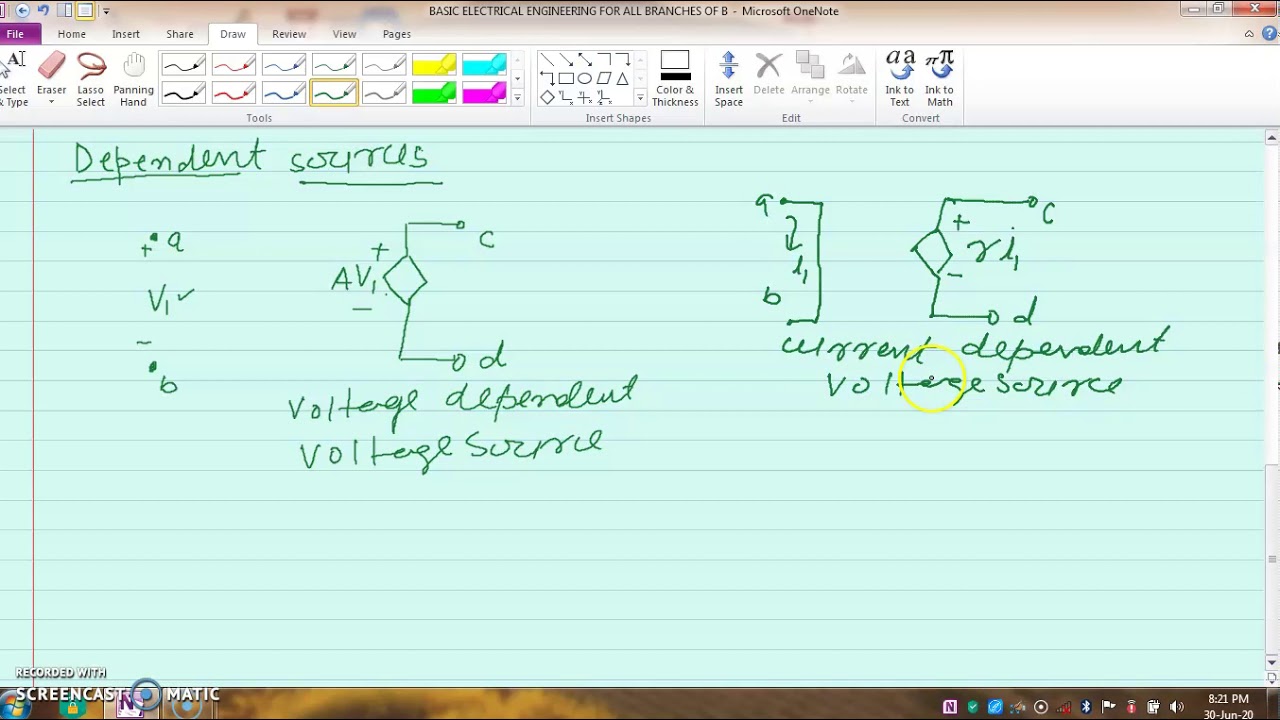 BASIC ELECTRICAL ENGINEERING FOR ALL BRANCHES OF B - Microsoft OneNote
File Home Insert Share Draw Review View Pages
Select & Type Eraser Lasso Select Panning Hand Color & Thickness Insert Space Delete Arrange Rotate Ink to Text Ink to Math
Tools Insert Shapes Edit Convert
Dependent sources
+ a
V1 ✓
-
b
+ c
AV1
-
d
voltage dependent
voltage source
a
i1
b
+ c
r i1
-
d
current dependent
voltage source
RECORDED WITH
SCREENCAST MATIC
8:21 PM
30-Jun-20